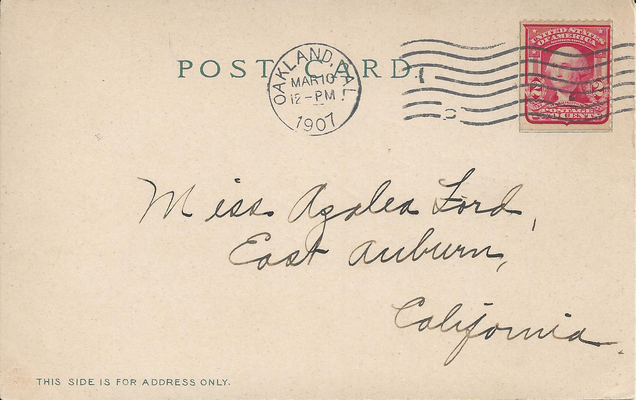 POST CARD.
OAKLAND, CAL.
MAR 10
12-PM
1907
UNITED STATES
OF AMERICA
2 2
POSTAGE
Miss Azalea Ford,
East Auburn,
California.
THIS SIDE IS FOR ADDRESS ONLY.